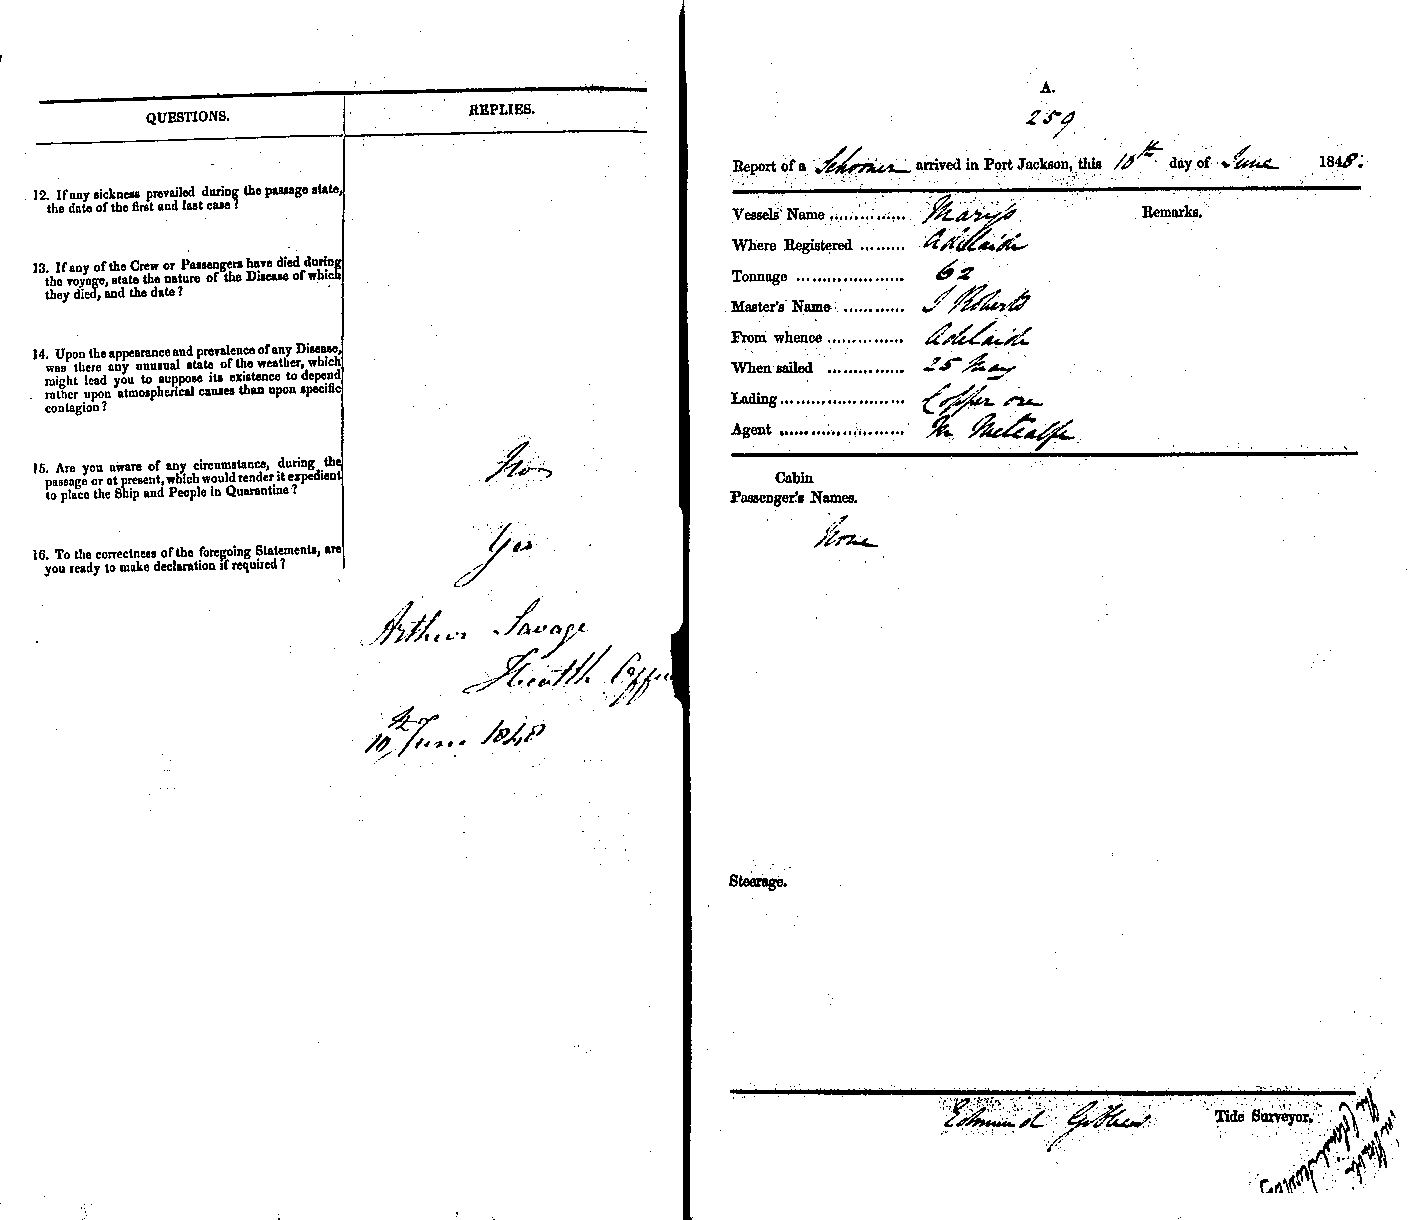 QUESTIONS.
REPLIES.
12. If any sickness prevailed during the passage state,
the date of the first and last case?
13. If any of the Crew or Passengers have died during
the voyage, state the nature of the Disease of which
they died, and the date?
14. Upon the appearance and prevalence of any Disease,
was there any unusual state of the weather, which
might lead you to suppose its existence to depend
rather upon atmospherical causes than upon specific
contagion?
15. Are you aware of any circumstance, during the
passage or at present, which would render it expedient
to place the Ship and People in Quarantine?
No
16. To the correctness of the foregoing Statements, are
you ready to make declaration if required?
Yes
Arthur Savage
Health Officer
10th June 1848
A.
259
Report of a Schooner arrived in Port Jackson, this 10th day of June 1848.
Vessels Name ............... Mary
Remarks.
Where Registered ......... Adelaide
Tonnage ..................... 62
Master's Name ............ J Roberts
From whence ............... Adelaide
When sailed ............... 25 May
Lading........................ Copper ore
Agent ........................ Mr Metcalfe
Cabin
Passenger's Names.
None
Steerage.
Edmund Gibbes Tide Surveyor.